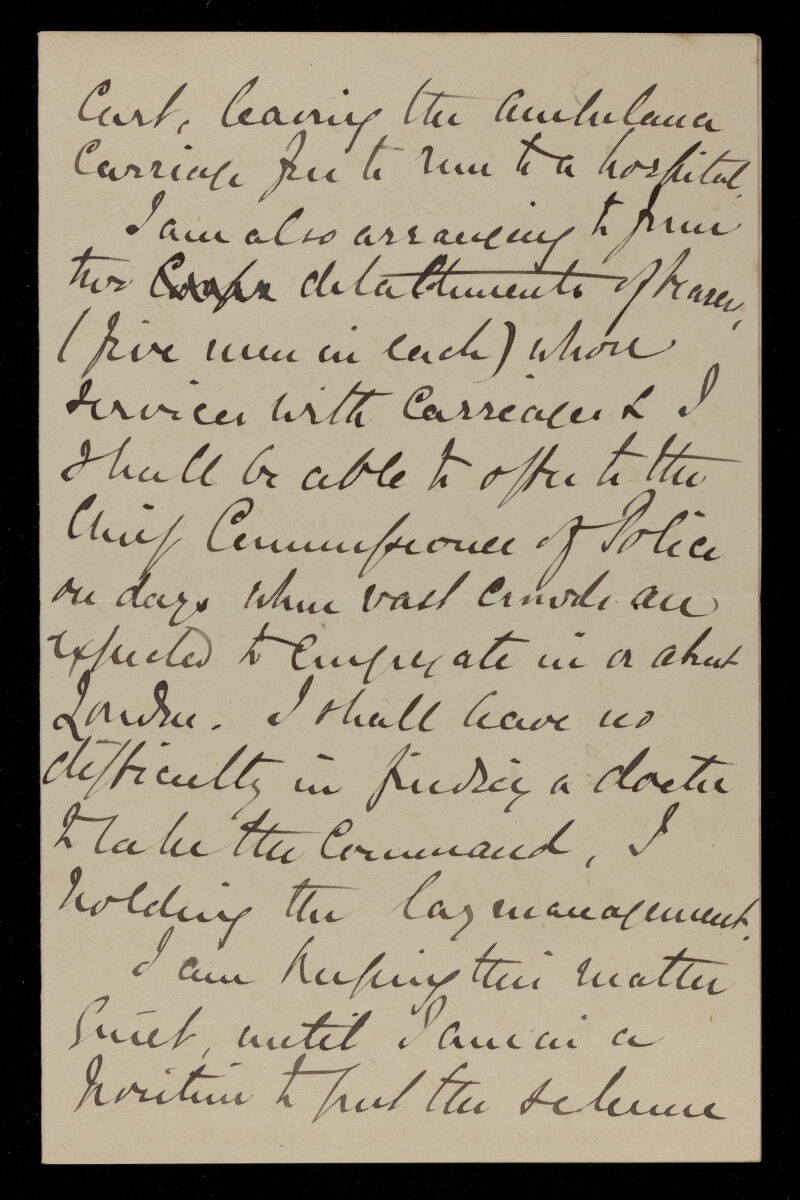 Cart, leaving the Ambulance
Carriage free to run to a hospital.
I am also arranging to form
two Corps detachments of bearers,
(five men in each) whose
services with Carriages & I
shall be able to offer to the
Chief Commissioner of Police
on days when vast crowds are
expected to congregate in or about
London. I shall have no
difficulty in finding a doctor
to take the Command, I
holding the lay management.
I am keeping this matter
quiet, until I am in a
position to put the scheme